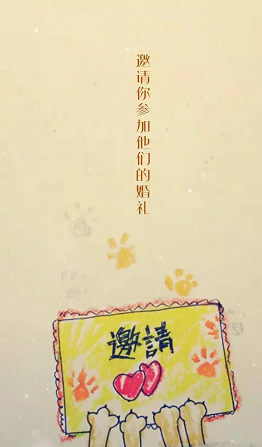 邀请你参加他们的婚礼
邀請